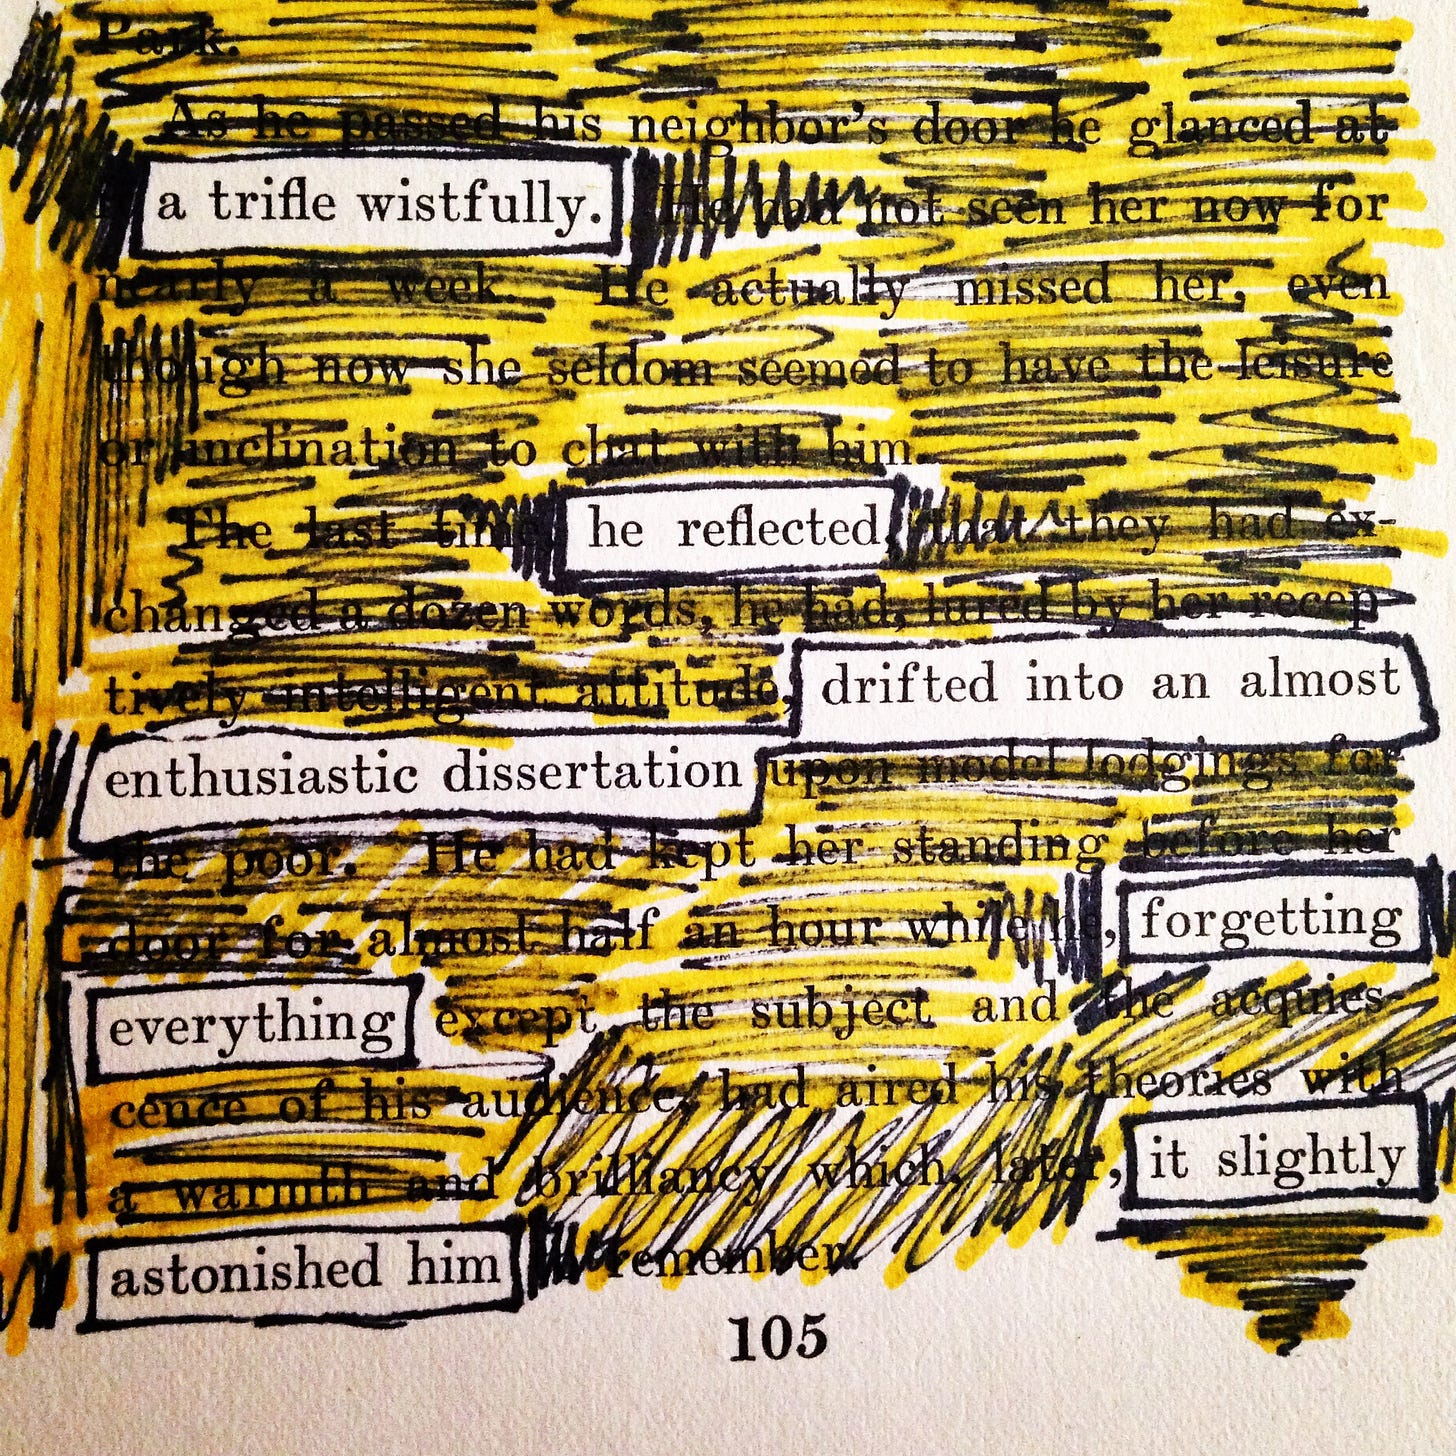 Park.
As he passed his neighbor's door he glanced at
a trifle wistfully. He had not seen her now for
nearly a week. He actually missed her, even
though now she seldom seemed to have the leisure
or inclination to chat with him.
The last time, he reflected, that they had ex-
changed a dozen words, he had, lured by her recep-
tively intelligent attitude, drifted into an almost
enthusiastic dissertation upon model lodgings for
the poor. He had kept her standing before her
door for almost half an hour while he, forgetting
everything except the subject and the acquies-
cence of his audience, had aired his theories with
a warmth and brilliancy which, later, it slightly
astonished him to remember.
105